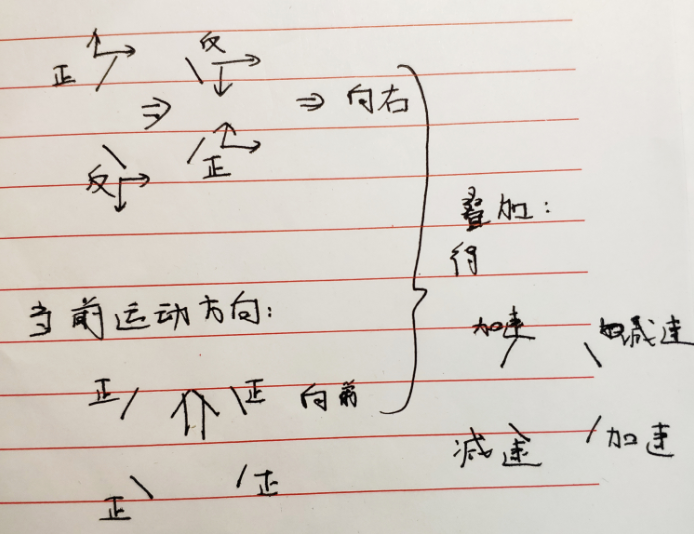 正 反
⇒ ⇒ 向右
反 正
叠加：
得
当前运动方向：
加速 减速
正 正 向前
减速 加速
正 正